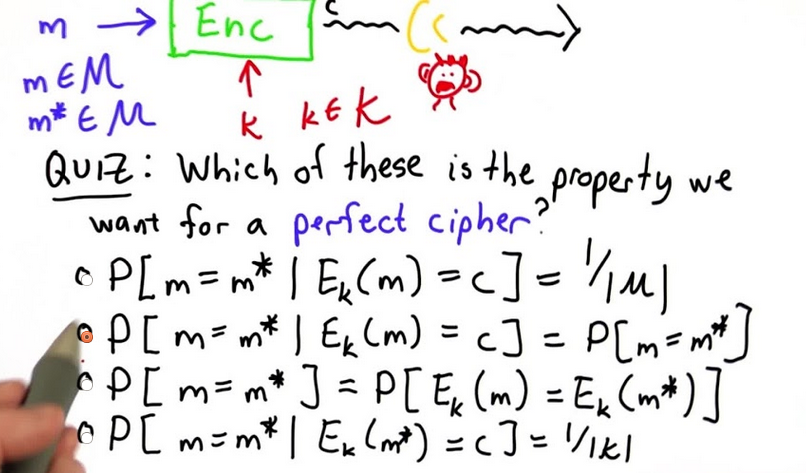 m → Enc c
m ∈ M
m* ∈ M
k k ∈ K
QUIZ: Which of these is the property we
want for a perfect cipher?
P[m = m* | E_k(m) = c] = 1/|M|
P[m = m* | E_k(m) = c] = P[m = m*]
P[m = m*] = P[E_k(m) = E_k(m*)]
P[m = m* | E_k(m*) = c] = 1/|K|